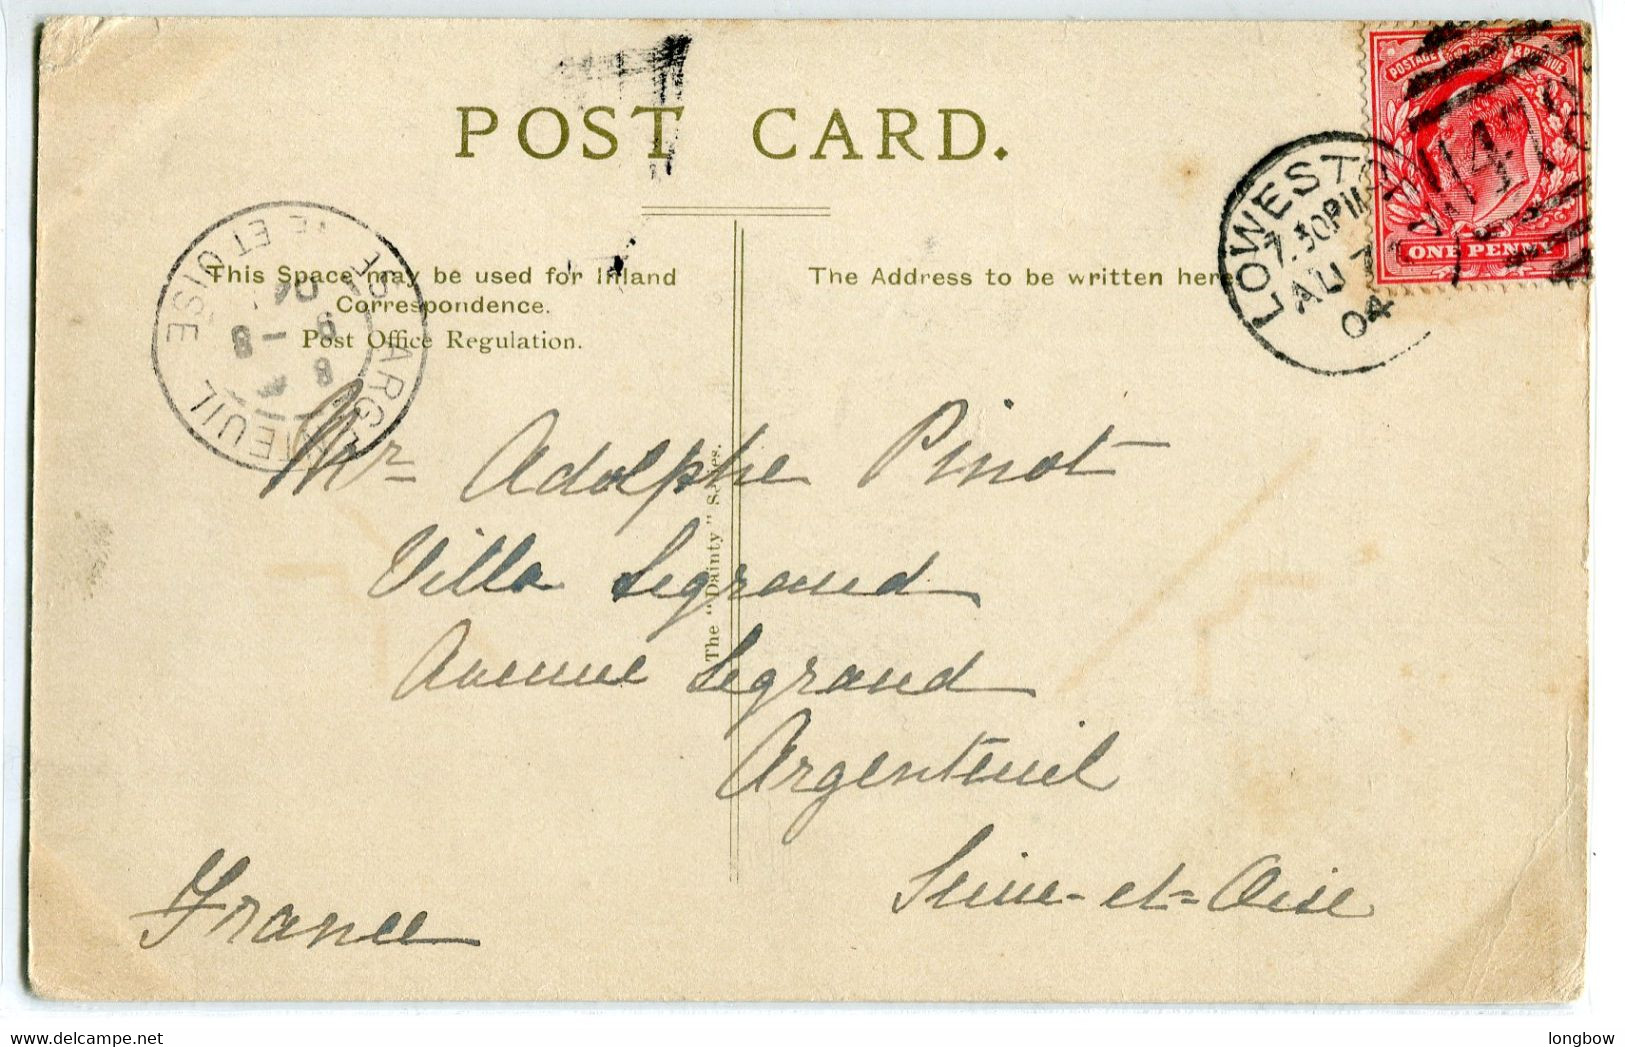 POST CARD.
POSTAGE & REVENUE
ONE PENNY
LOWESTO
7.30PM
AU 7
04
This Space may be used for Inland
Correspondence.
Post Office Regulation.
The Address to be written here
ARGENTEUIL
SEINE ET OISE
8
9 - 8
04
The "Dainty" Series.
Mr Adolphe Pinot
Villa Legrand
Avenue Legrand
Argenteuil
Seine-et-Oise
France
www.delcampe.net
longbow